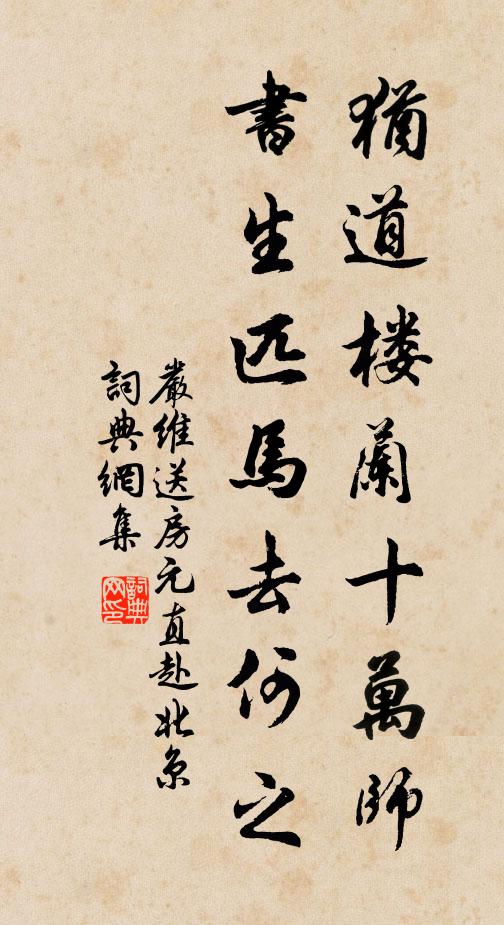 猶道楼蘭十萬師
書生匹馬去何之
嚴維送房元直赴北京
詞典網集
詞典網印